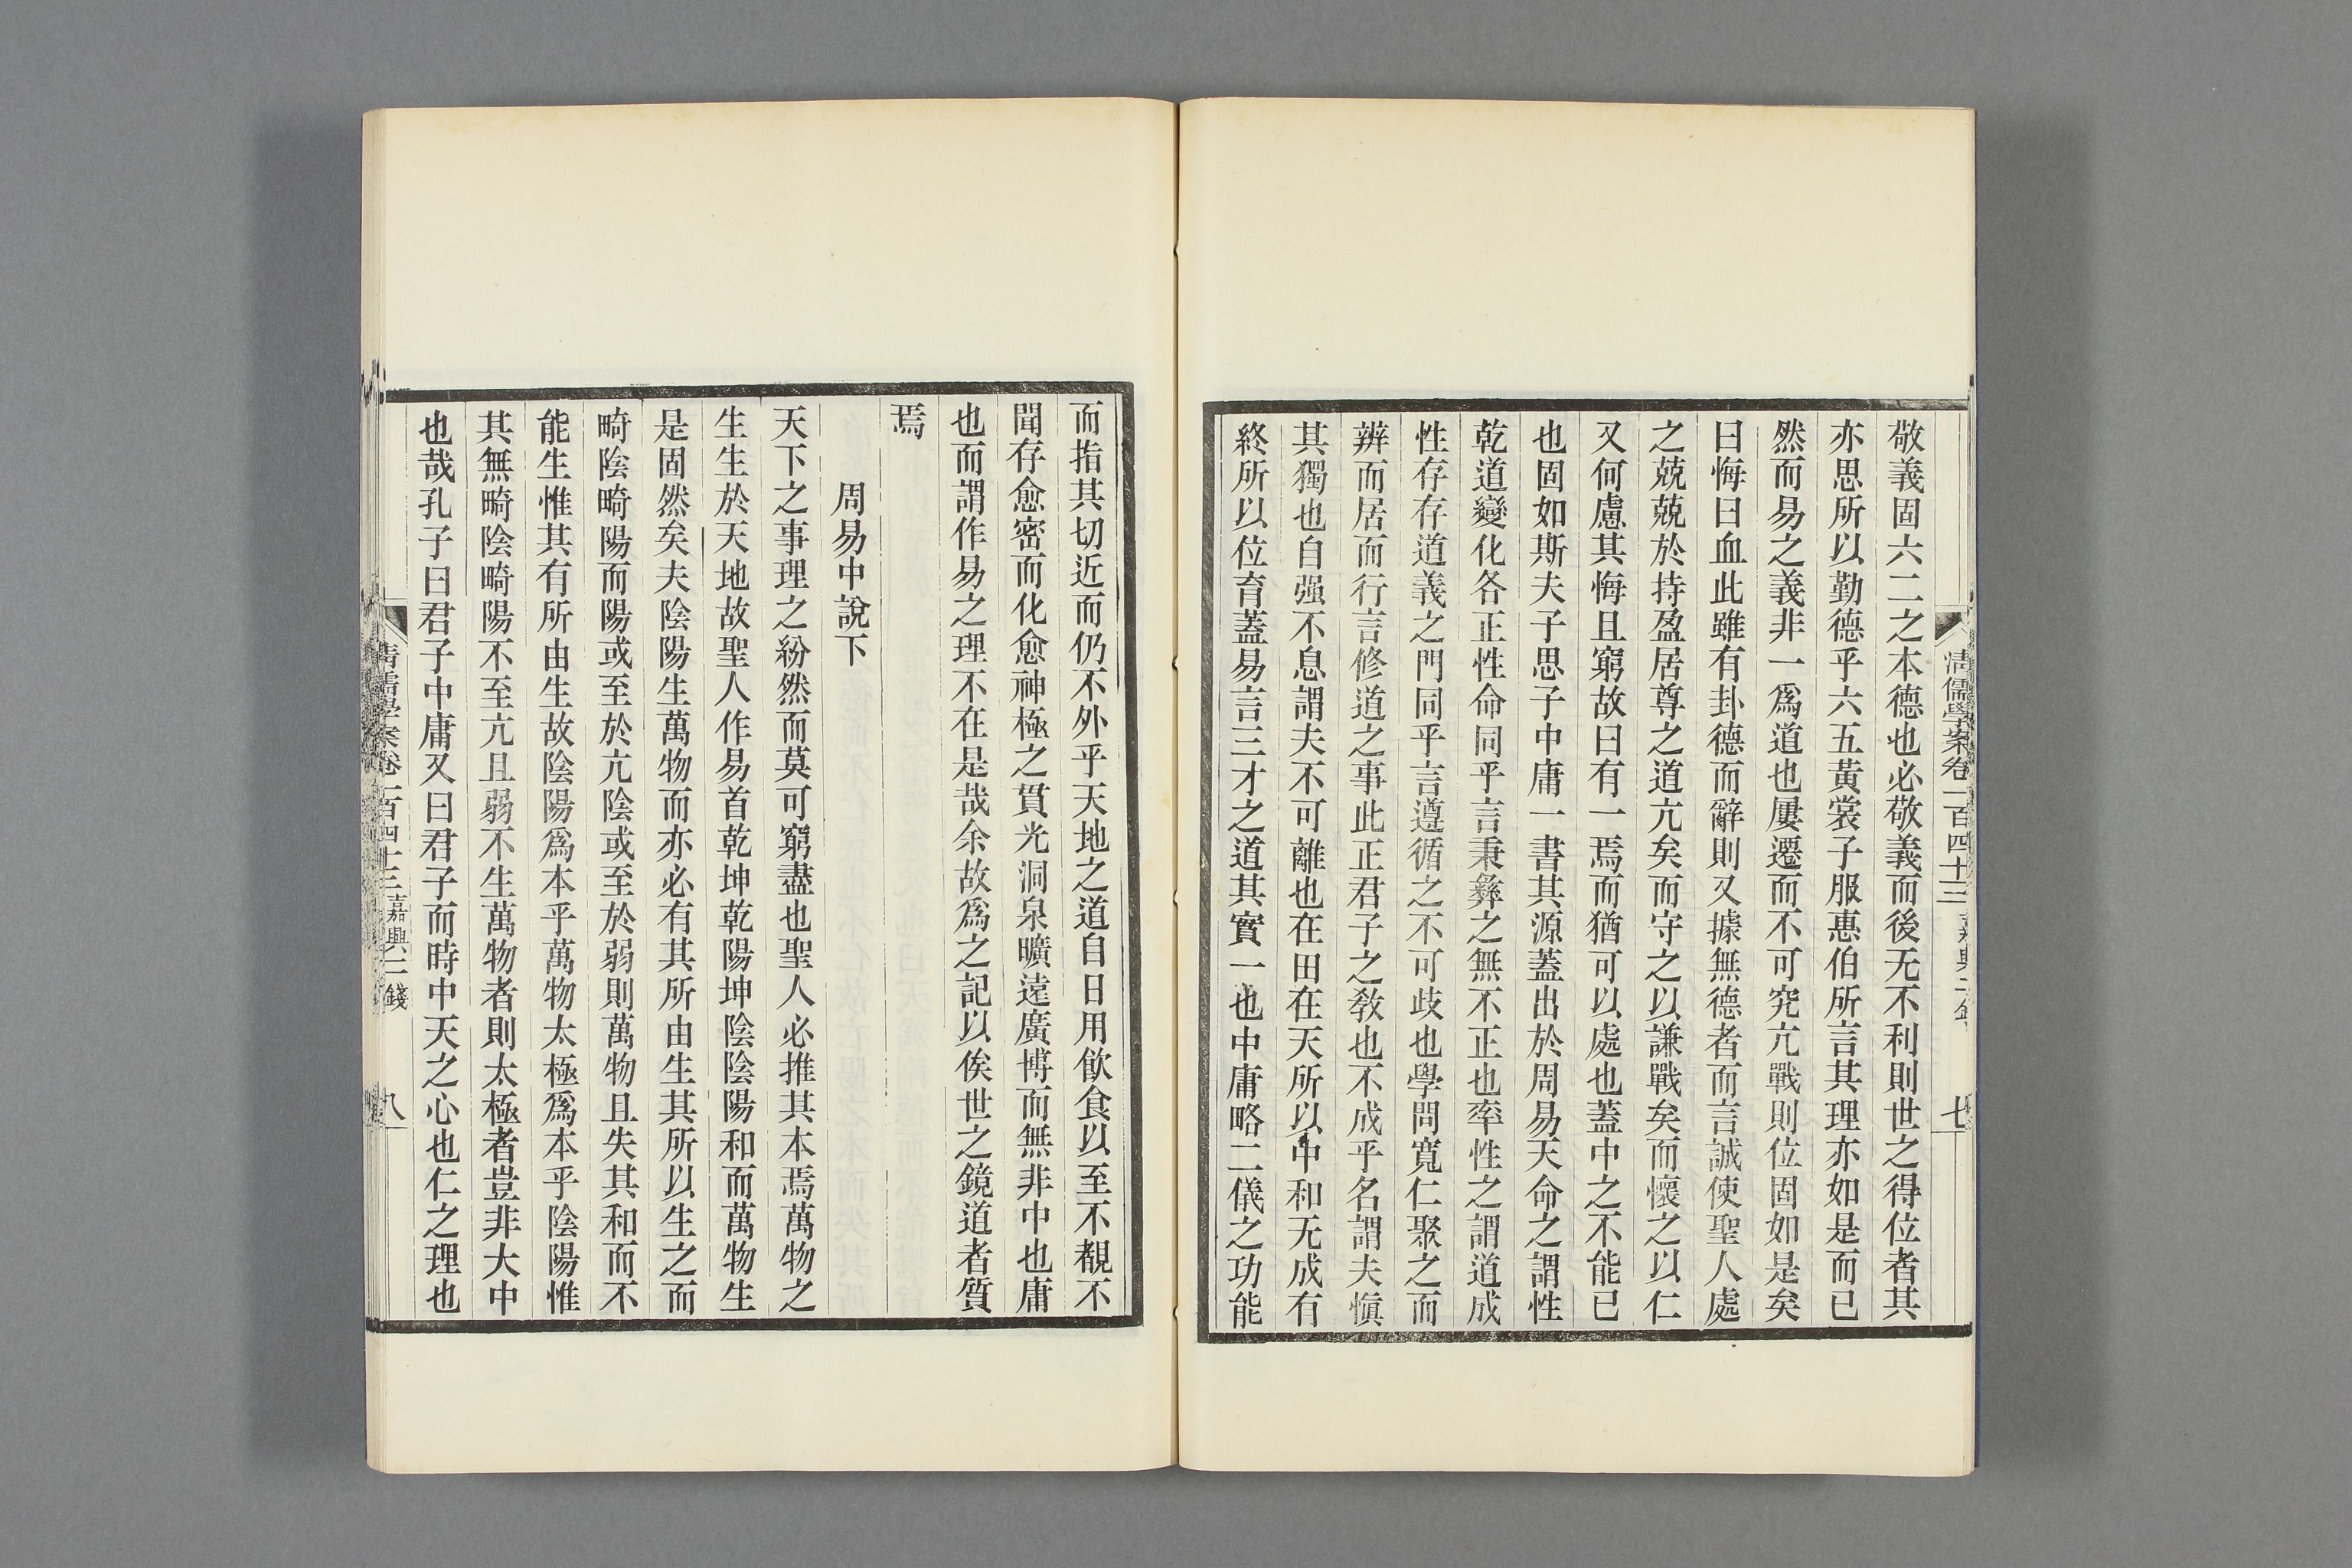 敬義固六二之本德也必敬義而後无不利則世之得位者其
亦思所以勤德乎六五黃裳子服惠伯所言其理亦如是而已
然而易之義非一爲道也屢遷而不可究亢戰則位固如是矣
曰悔曰血此雖有卦德而辭則又據無德者而言誠使聖人處
之兢兢於持盈居尊之道亢矣而守之以謙戰矣而懷之以仁
又何慮其悔且窮故曰有一焉而猶可以處也蓋中之不能已
也固如斯夫子思子中庸一書其源蓋出於周易天命之謂性
乾道變化各正性命同乎言秉彝之無不正也率性之謂道成
性存存道義之門同乎言遵循之不可歧也學問寬仁聚之而
辨而居而行言修道之事此正君子之敎也不成乎名謂夫愼
其獨也自强不息謂夫不可離也在田在天所以中和无成有
終所以位育蓋易言三才之道其實一也中庸略二儀之功能
清儒學案卷一百四十三 嘉興二錢 七
而指其切近而仍不外乎天地之道自日用飮食以至不覩不
聞存愈密而化愈神極之貫光洞泉曠遠廣博而無非中也庸
也而謂作易之理不在是哉余故爲之記以俟世之鏡道者質
焉
周易中說下
天下之事理之紛然而莫可窮盡也聖人必推其本焉萬物之
生生於天地故聖人作易首乾坤乾陽坤陰陰陽和而萬物生
是固然矣夫陰陽生萬物而亦必有其所由生其所以生之而
畸陰畸陽而陽或至於亢陰或至於弱則萬物且失其和而不
能生惟其有所由生故陰陽爲本乎萬物太極爲本乎陰陽惟
其無畸陰畸陽不至亢且弱不生萬物者則太極者豈非大中
也哉孔子曰君子中庸又曰君子而時中天之心也仁之理也
清儒學案卷一百四十三 嘉興二錢 八